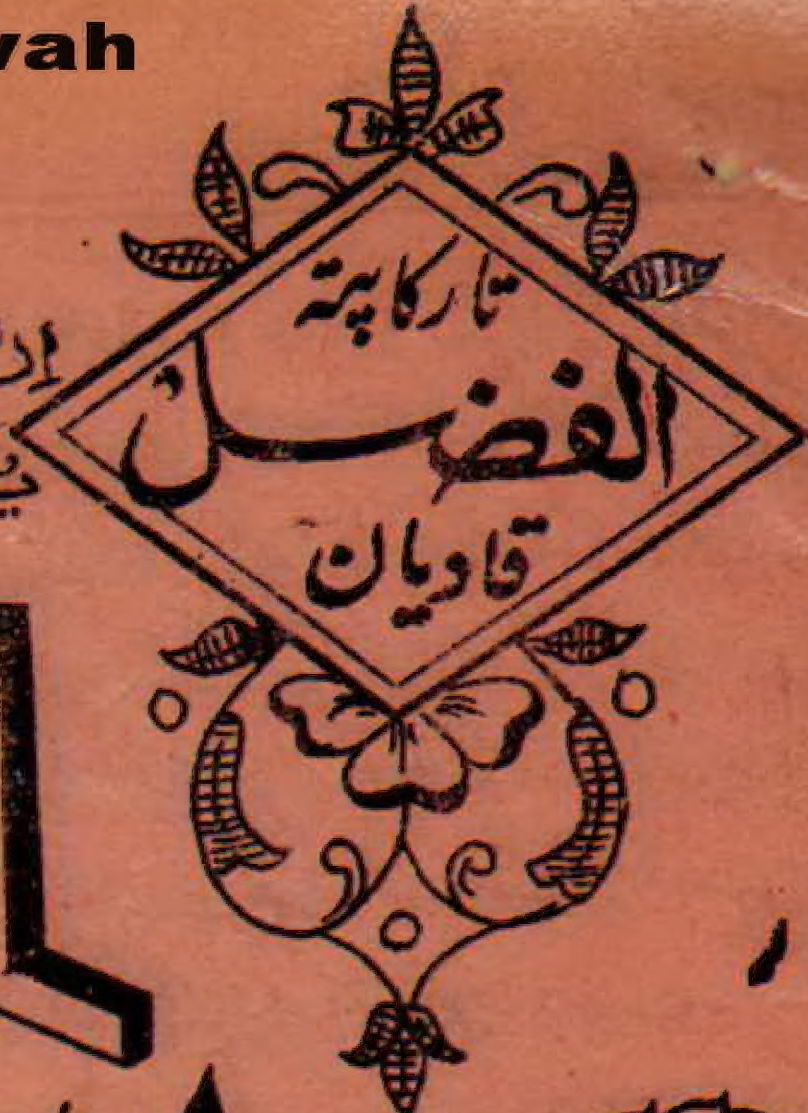 vah
تار کا پتہ
الفضل
قادیان